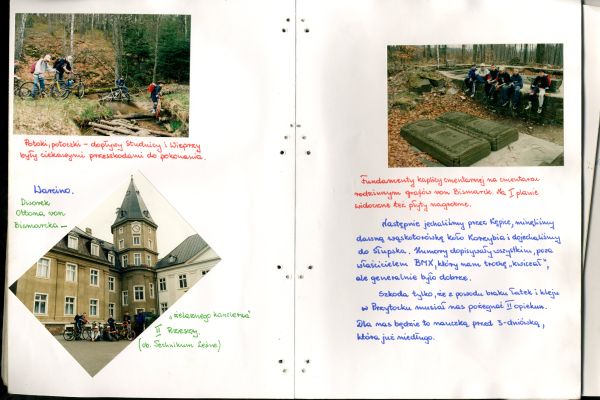 Potoki, potoczki - dopływy Studnicy i Wieprzy
były ciekawymi przeszkodami do pokonania.
Warcino.
Dworek
Ottona von
Bismarcka —
„żelaznego kanclerza"
II Rzeszy.
(ob. Technikum Leśne)
Fundamenty kaplicy cmentarnej na cmentarzu
rodzinnym grafów von Bismarck. Na I planie
widoczne też płyty nagrobne.
Następnie jechaliśmy przez Kępice, minęliśmy
dawną wąskotorówkę koło Korzybia i dojechaliśmy
do Słupska. Humory dopisywały wszystkim, poza
właścicielem BMX, który nam trochę „kwiczał",
ale generalnie było dobrze.
Szkoda tylko, że z powodu braku łatek i kleju
w Przytocku musiał nas pożegnać II opiekun.
Dla nas będzie to nauczką przed 3-dniówką,
która już niedługo.